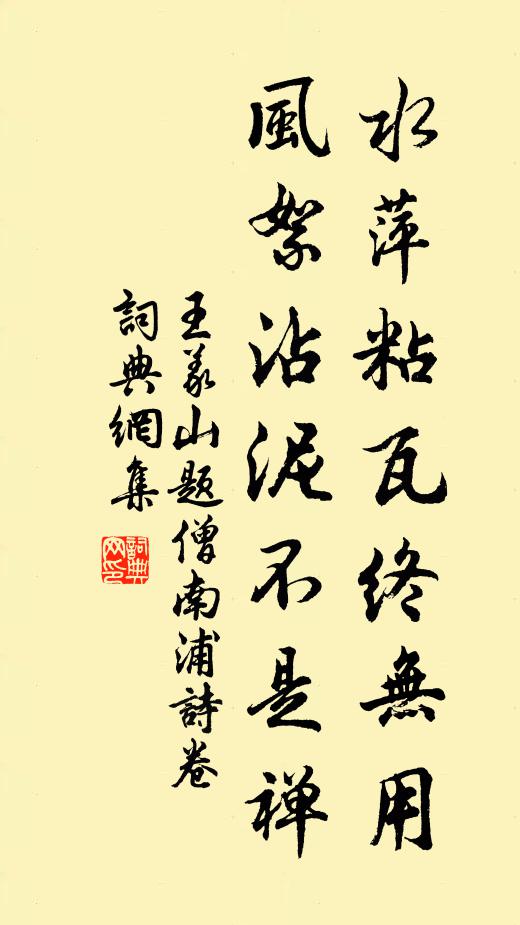 水萍粘瓦終無用
風絮沾泥不是禅
王义山题僧南浦詩卷
詞典網集
詞典
网印